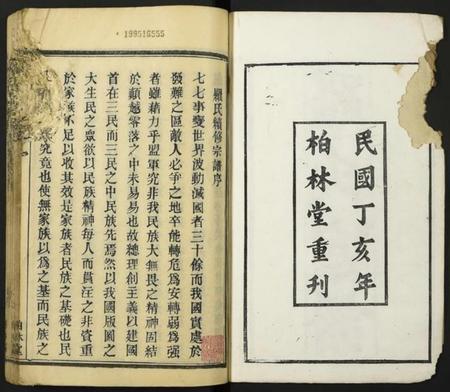 民國丁亥年
柏林堂重刊
199516555
顧氏續修宗譜序
七七事變世界波動滅國者三十餘而我國實處於
發難之區敵人必爭之地卒能轉危爲安轉弱爲强
者雖藉力乎盟軍究非我民族大無畏之精神固結
於顛越零落之中未易易也故總理創主義以建國
首在三民而三民之中民族先焉然以我國版圖之
大生民之眾欲以民族精神每人而貫注之非資重
於家族不足以收其效是家族者民族之基礎也民
究竟也使無家族以爲之基而民族之
柏林堂